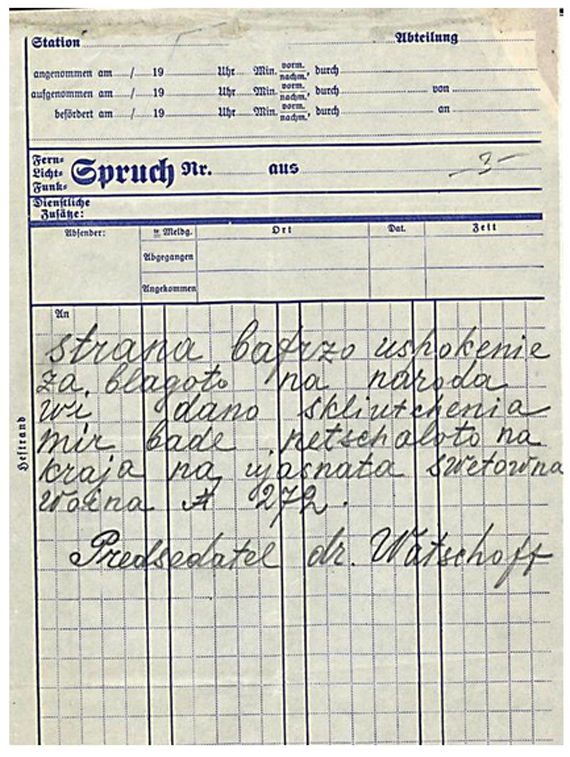 Station Abteilung
angenommen am / 19 Uhr Min. vorm. nachm., durch
aufgenommen am / 19 Uhr Min. vorm. nachm., durch von
befördert am / 19 Uhr Min. vorm. nachm., durch an
Fern-
Licht- Spruch Nr. aus 3
Funk-
Dienstliche
Zusätze:
Absender: Meldg. Ort Dat. Zeit
Abgegangen
Angekommen
An
strana bafrzo uspokenie
za blagoto na naroda
wi dano skliutchenia
mir bade netschaloto na
kraja na ujasnata swetowna
woina A 272.
Predsedatel dr. Watschoff
Heftrand